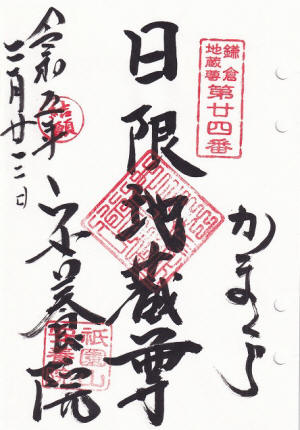 鎌倉
地蔵尊
第廿四番
かまくら
日限地蔵尊
安養院
令和五年
二月廿二日
結願
祇園山
安養院